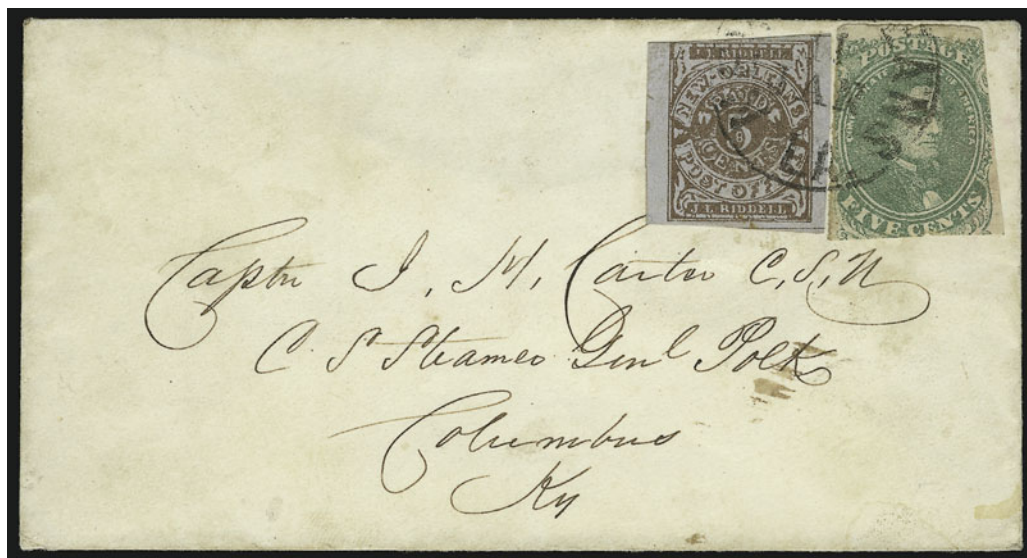 J. L. RIDDELL
NEW-ORLEANS
PAID
5
CENTS
POST OFF
J. L. RIDDELL
POSTAGE
CONFEDERATE STATES OF AMERICA
FIVE CENTS
Captn J. H. Carter C, S, N
C. S Steamer Genl Polk
Columbus
Ky